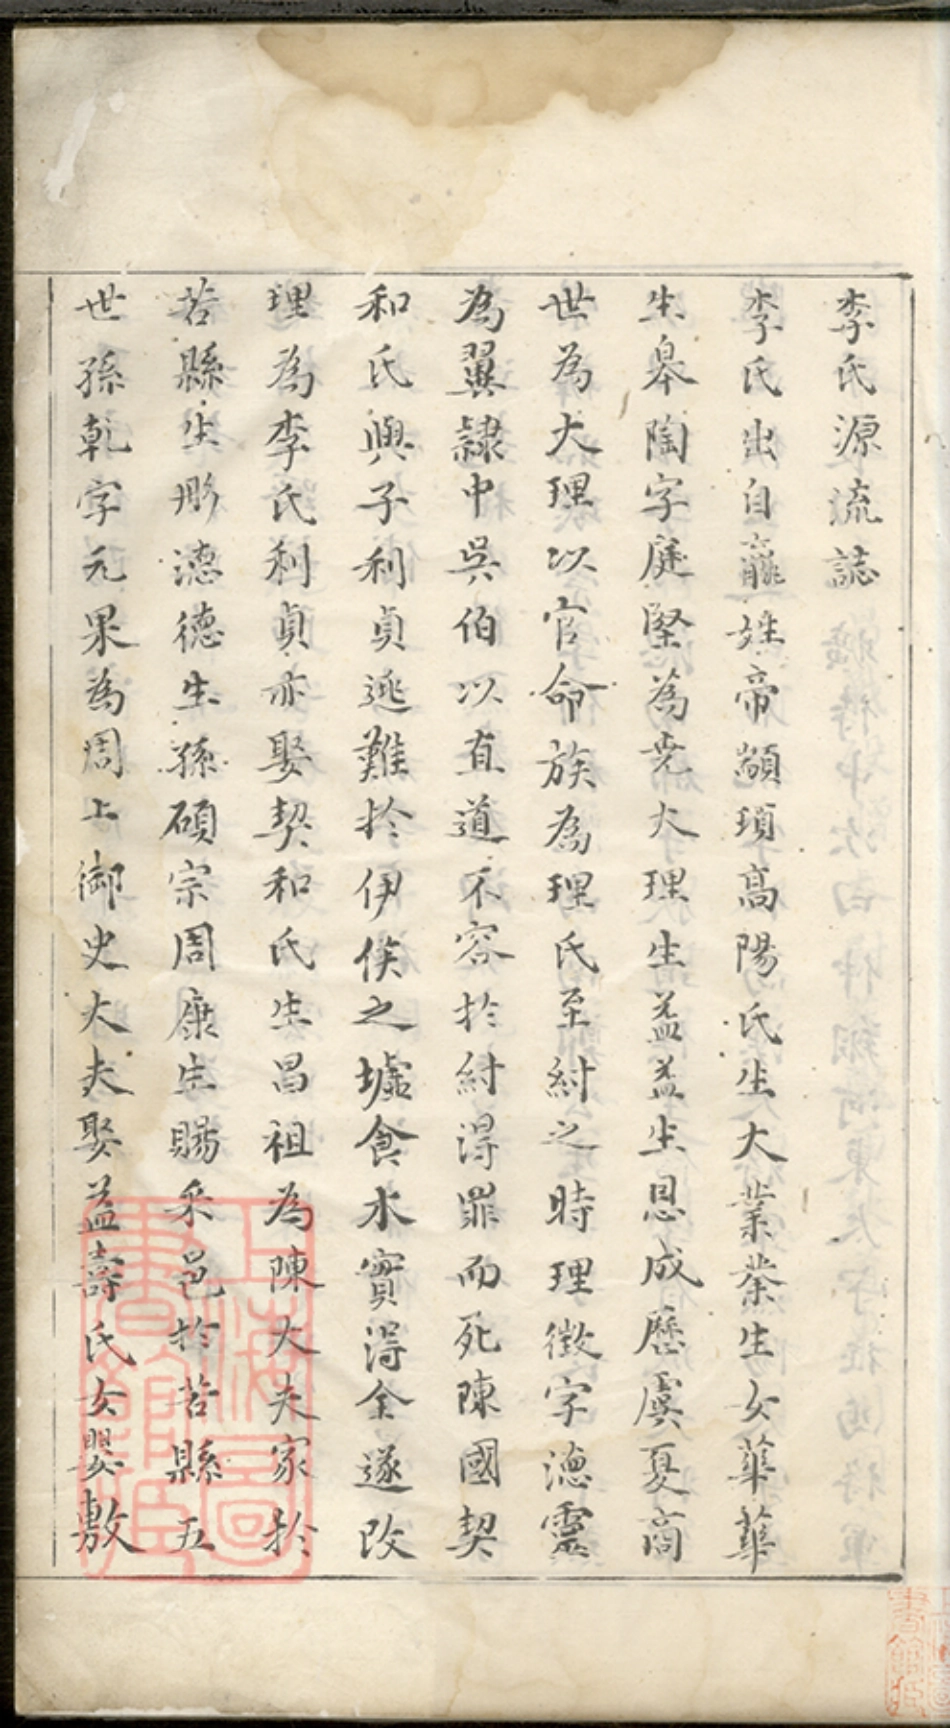 李氏源流誌
李氏出自嬴姓帝顓頊高陽氏生大業業生女華華
生皋陶字庭堅為堯大理生益益生恩成歷虞夏商
世為大理以官命族為理氏至紂之時理徵字德靈
為翼隸中吳伯以直道不容於紂得罪而死陳國契
和氏興子利貞逃難於伊侯之墟食木實得全遂改
理為李氏利貞亦娶契和氏生昌祖為陳大夫家於
苦縣生彤德德生孫碩宗周康生賜采邑於苦縣五
世孫乾字元果為周上御史大夫娶益壽氏女嬰敷
上海圖書館藏